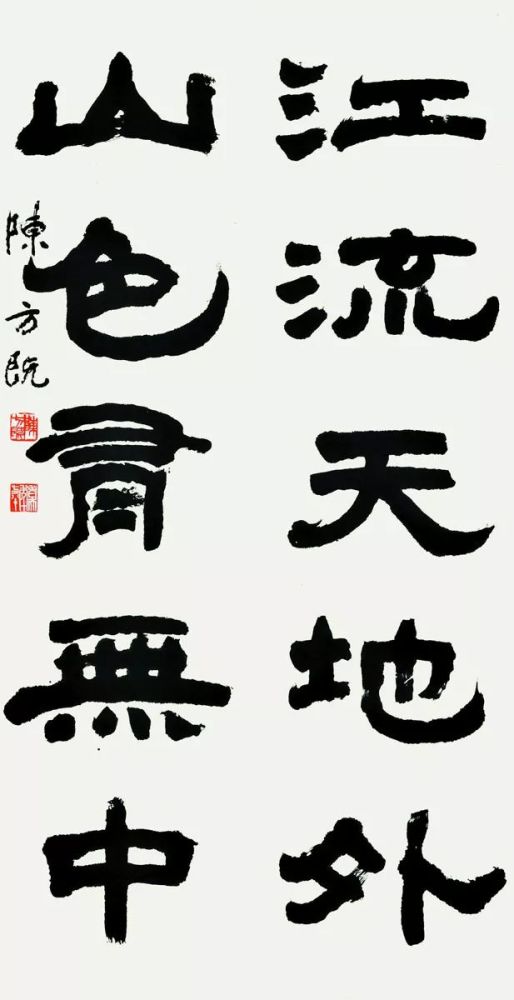 江流天地外
山色有無中
陳方既